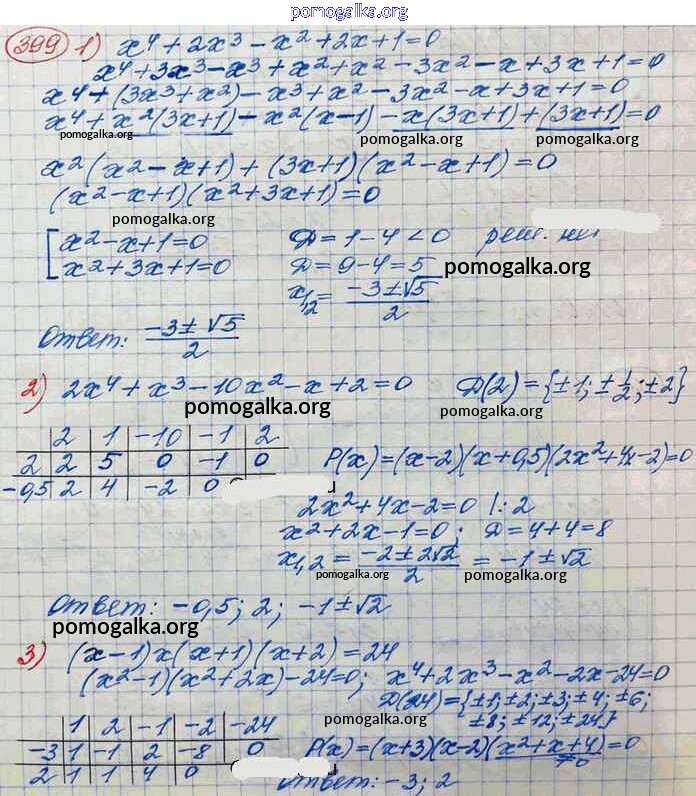 pomogalka.org
399 1) x⁴ + 2x³ - x² + 2x + 1 = 0
x⁴ + 3x³ - x³ + x² + x² - 3x² - x + 3x + 1 = 0
x⁴ + (3x³ + x²) - x³ + x² - 3x² - x + 3x + 1 = 0
x⁴ + x²(3x+1) - x²(x-1) - x(3x+1) + (3x+1) = 0
pomogalka.org pomogalka.org pomogalka.org
x²(x² - x + 1) + (3x+1)(x² - x + 1) = 0
(x² - x + 1)(x² + 3x + 1) = 0
pomogalka.org
[ x² - x + 1 = 0 Д = 1 - 4 < 0 реш. не
x² + 3x + 1 = 0 Д = 9 - 4 = 5 pomogalka.org
x₁,₂ = (-3 ± √5)/2
Ответ: (-3 ± √5)/2
2) 2x⁴ + x³ - 10x² - x + 2 = 0 Д(2) = {±1; ±1/2; ±2}
pomogalka.org pomogalka.org
2 1 -10 -1 2
2 2 5 0 -1 0 P(x) = (x-2)(x+0,5)(2x²+4x-2) = 0
-0,5 2 4 -2 0
2x² + 4x - 2 = 0 |: 2
x² + 2x - 1 = 0; Д = 4 + 4 = 8
x₁,₂ = (-2 ± 2√2)/2 = -1 ± √2
pomogalka.org pomogalka.org
Ответ: -0,5; 2; -1 ± √2
pomogalka.org
3) (x-1)x(x+1)(x+2) = 24
(x²-1)(x²+2x) - 24 = 0; x⁴ + 2x³ - x² - 2x - 24 = 0
Д(24) = {±1; ±2; ±3; ±4; ±6;
±8; ±12; ±24}
pomogalka.org
1 2 -1 -2 -24
-3 1 -1 2 -8 0 P(x) = (x+3)(x-2)(x²+x+4) = 0
≠0
2 1 1 4 0
Ответ: -3; 2